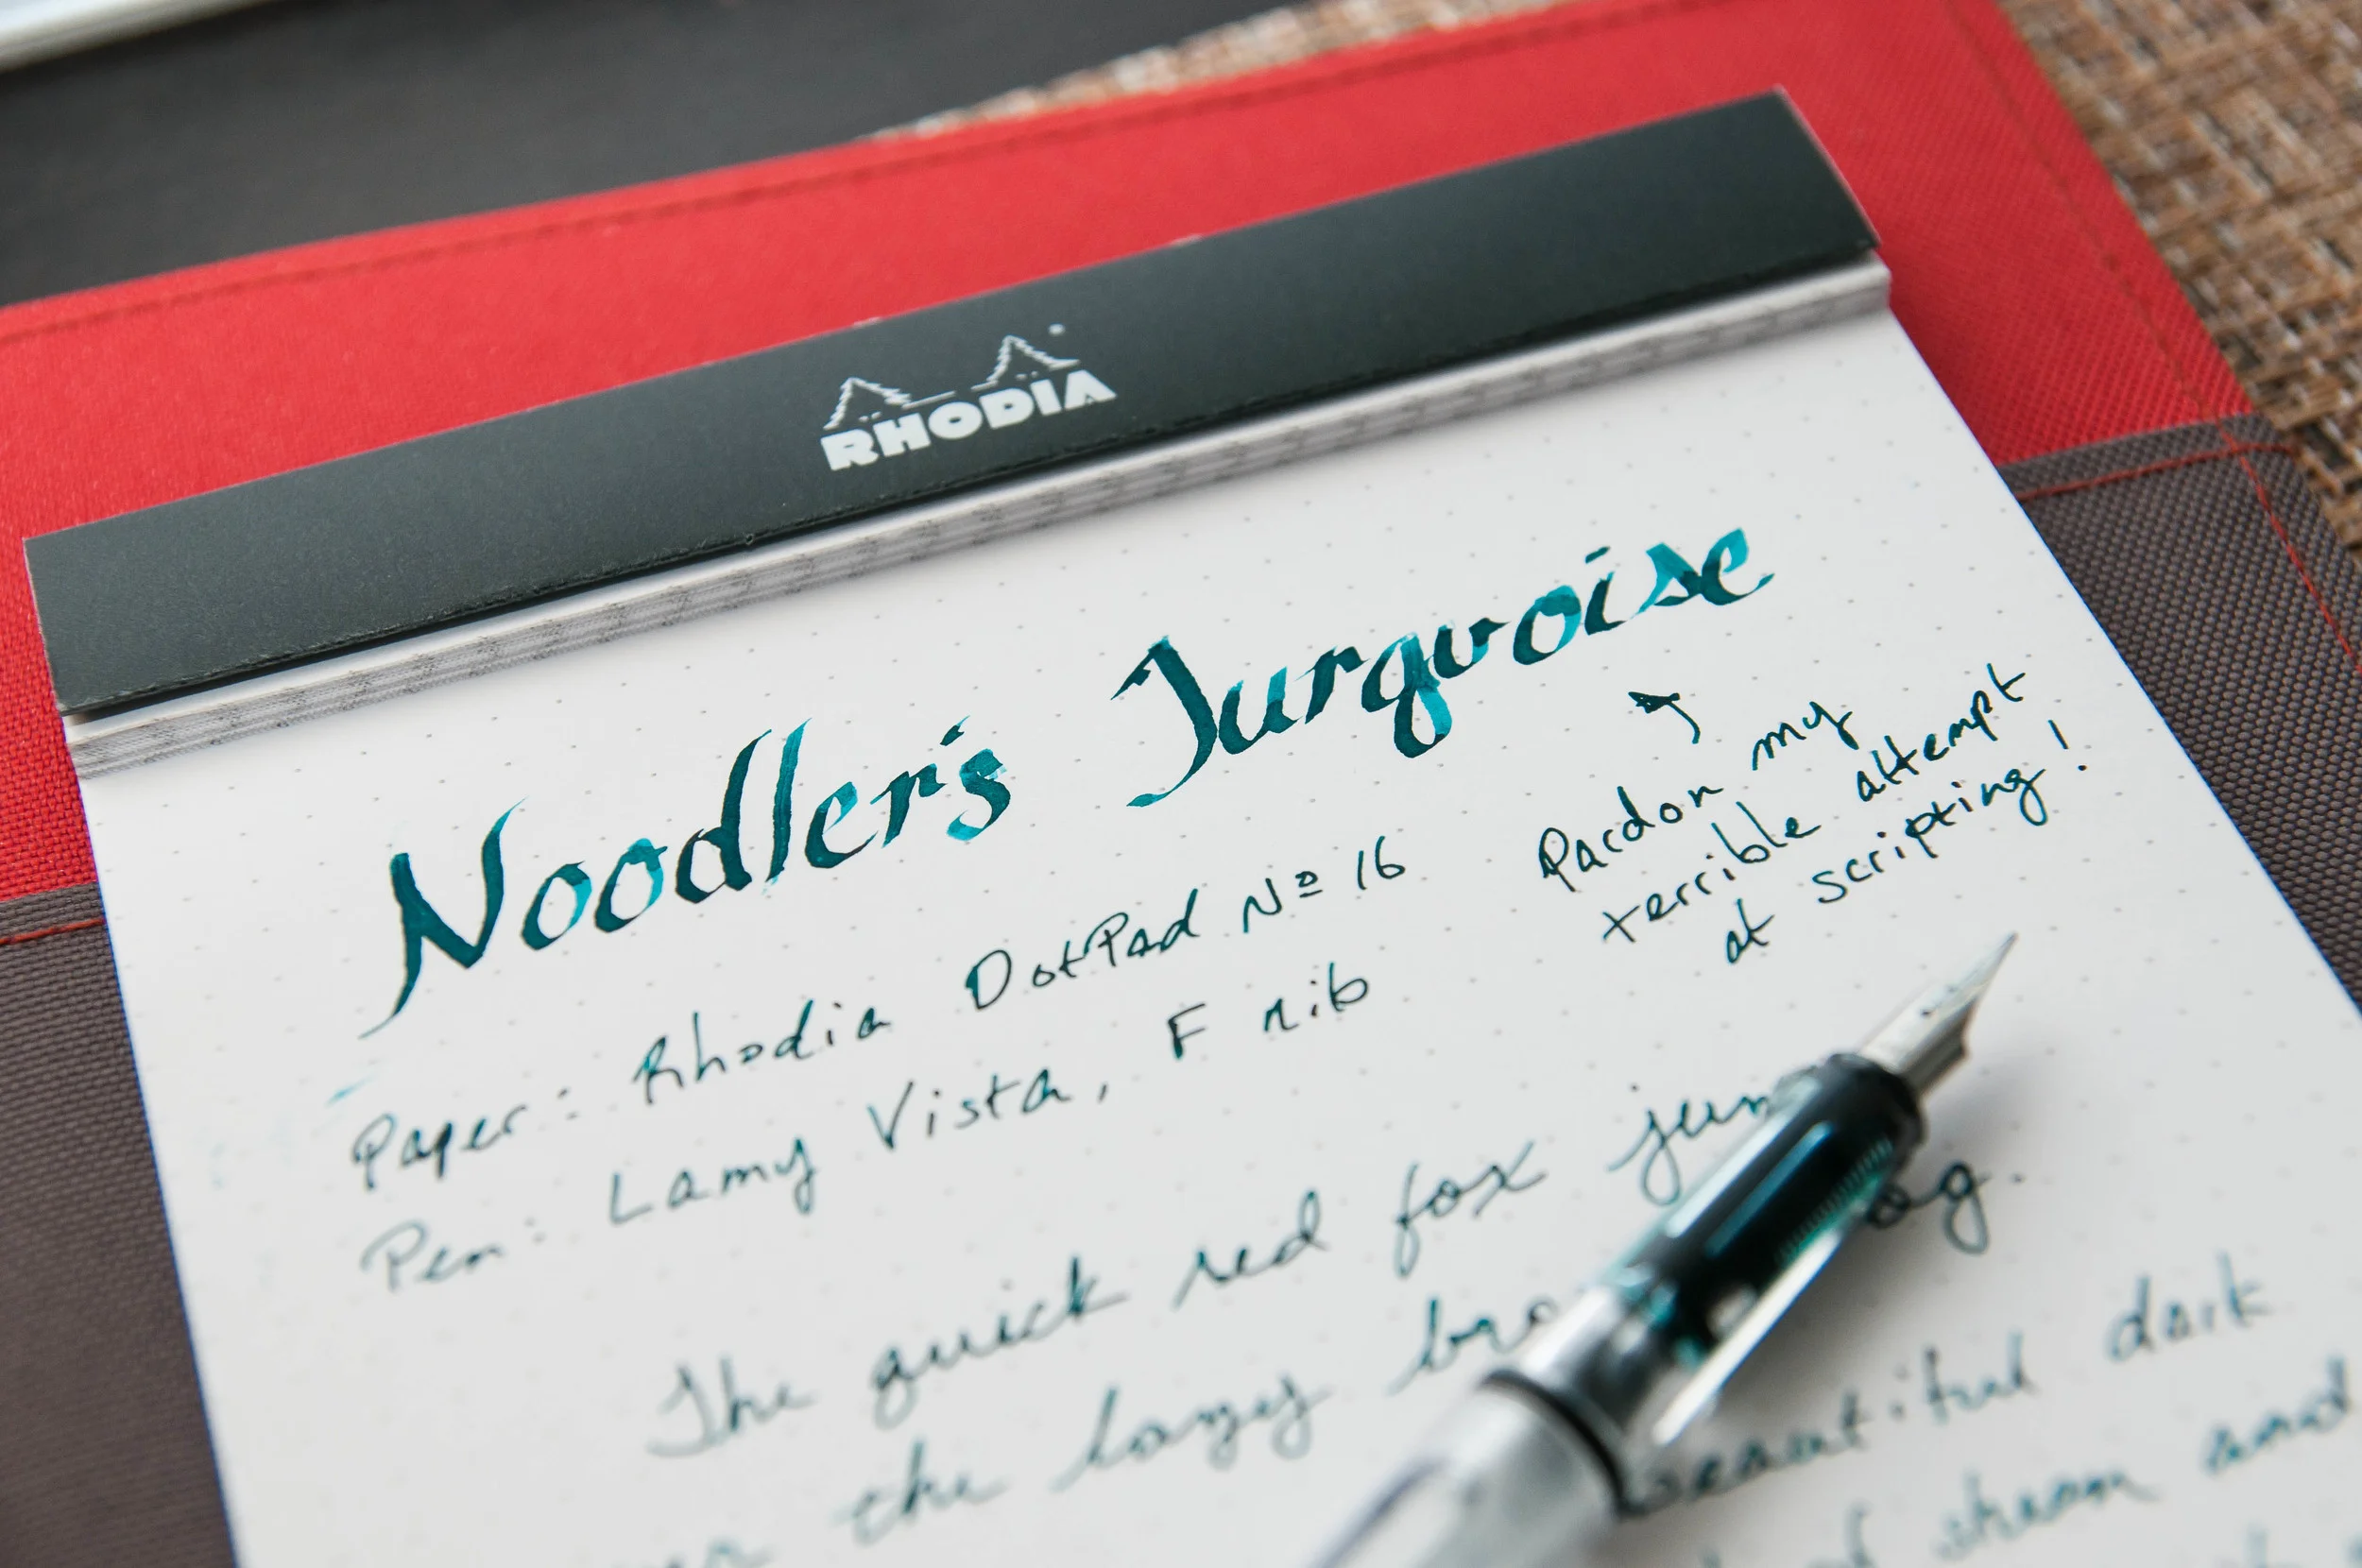 RHODIA
Noodler's Turquoise
Pardon my
terrible attempt
at scripting!
Paper: Rhodia DotPad Nº 16
Pen: Lamy Vista, F nib
The quick red fox jum
the lazy bro og.
beautiful dark
of sheen and